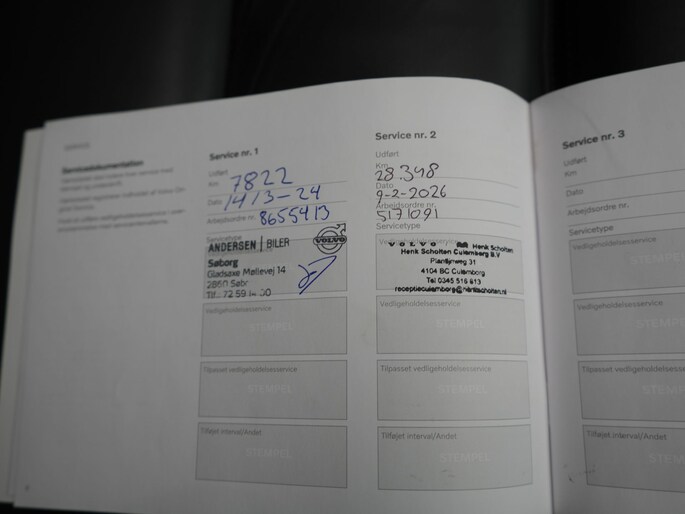 SERVICE
Servicedokumentation
Service nr. 1
Udført
Km 7822
Dato 14/3-24
Arbejdsordre nr. 8655413
Servicetype
ANDERSEN | BILER
VOLVO
Søborg
Gladsaxe Møllevej 14
2860 Søbr
Tlf.: 72 59
Vedligeholdelsesservice
STEMPEL
Tilpasset vedligeholdelsesservice
STEMPEL
Tilføjet interval/Andet
STEMPEL
Service nr. 2
Udført
Km 28.348
Dato 9-2-2026
Arbejdsordre nr. 5171091
Servicetype
VOLVO Henk Scholten
Henk Scholten Culemborg B.V
Plantijnweg 31
4104 BC Culemborg
Tel 0345 516 813
receptieculemborg@henkscholten.nl
Vedligeholdelsesservice
STEMPEL
Tilpasset vedligeholdelsesservice
STEMPEL
Tilføjet interval/Andet
STEMPEL
Service nr. 3
Udført
Km
Dato
Arbejdsordre nr.
Servicetype
Vedligeholdelsesse
STEM
Tilpasset vedligehol
STEM
Tilføjet interval/And
STEM